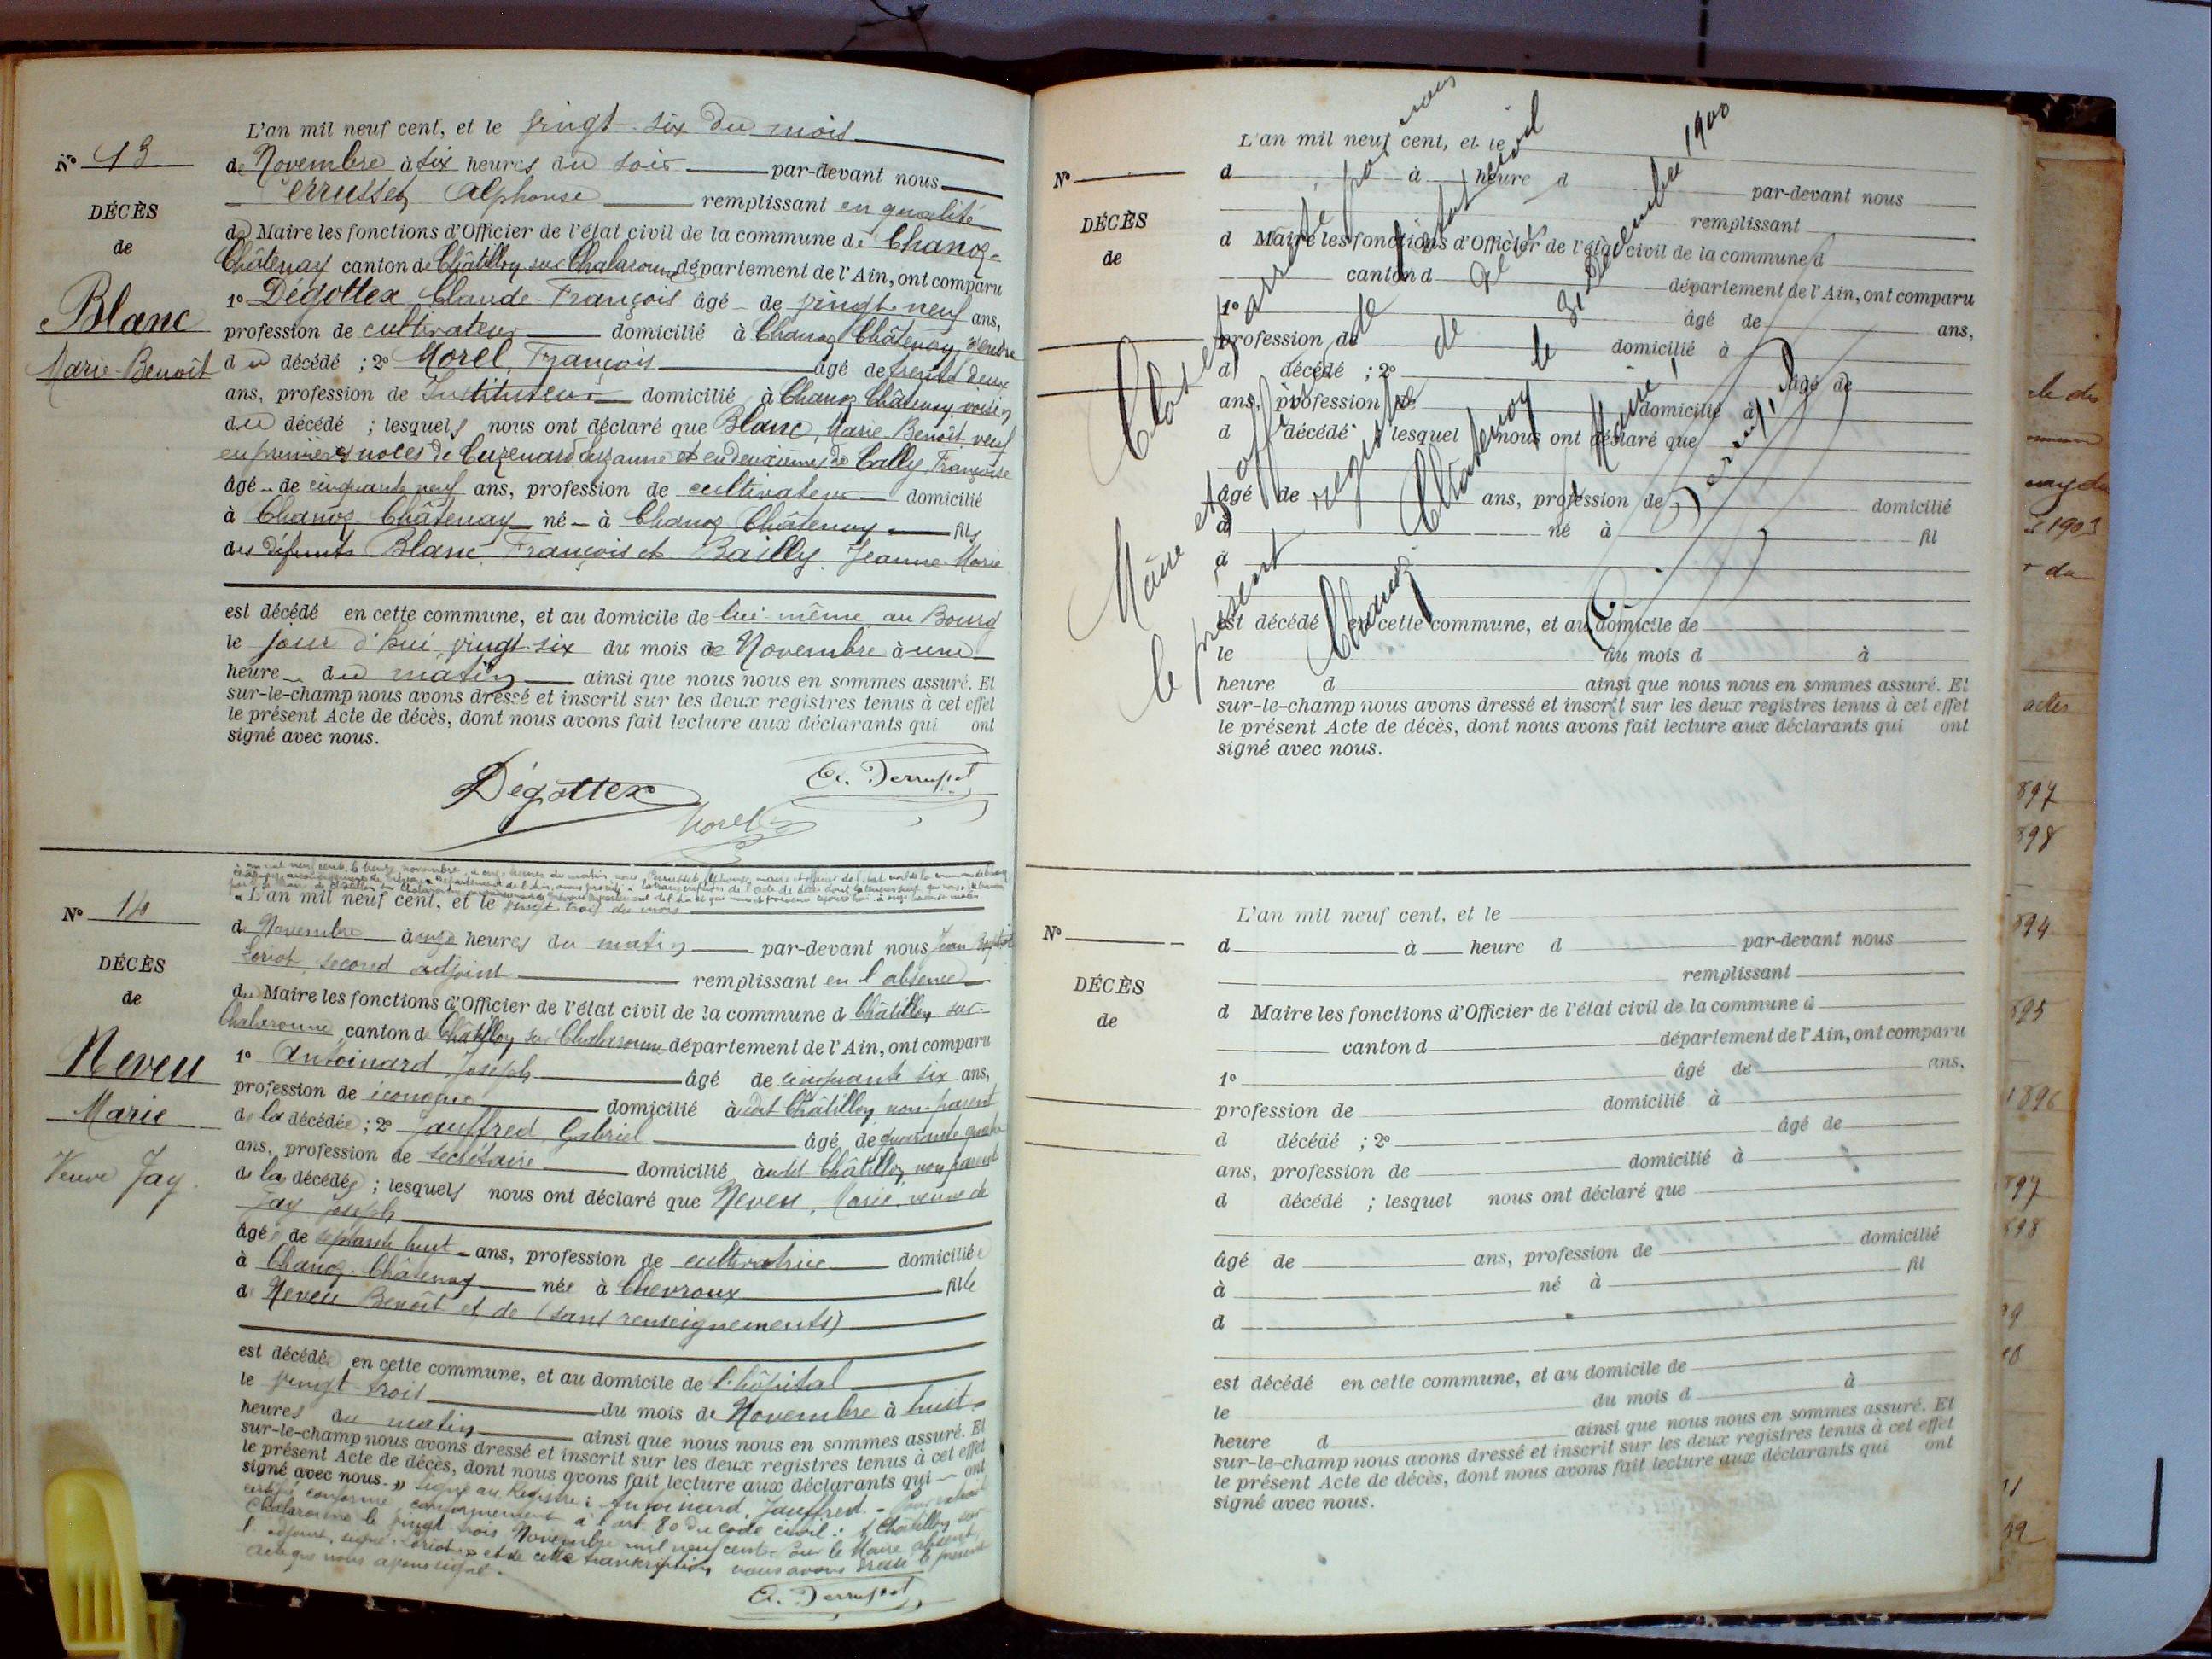 L'an mil neuf cent, et le vingt-six du mois
N° 13
de Novembre à six heures du soir par-devant nous
Perrusset Alphonse remplissant en qualité
DÉCÈS
de
du Maire les fonctions d'Officier de l'état civil de la commune de Chanoz-
Châtenay canton de Châtillon sur Chalaronne département de l'Ain, ont comparu
1° Dégottex Claude-François âgé de vingt-neuf ans,
Blanc
profession de cultivateur domicilié à Chanoz Châtenay, gendre
Marie-Benoît
du décédé ; 2° Morel, François âgé de trente deux
ans, profession de Instituteur domicilié à Chanoz Châtenay voisin
du décédé ; lesquels nous ont déclaré que Blanc, Marie Benoît veuf
en premières noces de Cuzenard Suzanne et en deuxièmes de Cally, Françoise
âgé de cinquante neuf ans, profession de cultivateur domicilié
à Chanoz Châtenay né à Chanoz Châtenay fils
des défunts Blanc, François et Bailly, Jeanne-Marie
est décédé en cette commune, et au domicile de lui-même, au Bourg
le jour d'hui, vingt-six du mois de Novembre à une
heure du matin ainsi que nous nous en sommes assuré. Et
sur-le-champ nous avons dressé et inscrit sur les deux registres tenus à cet effet
le présent Acte de décès, dont nous avons fait lecture aux déclarants qui ont
signé avec nous.
Dégottex
A. Perrusset
Morel
mil neuf cent, le trente novembre, à onze heures du matin, nous Perrusset, Alphonse, maire et officier de l'état civil de la commune de Chanoz
"L'an mil neuf cent, et le vingt-trois du mois
N° 14
de Novembre à onze heures du matin par-devant nous Jean Baptiste
Loriot, second adjoint remplissant en l'absence
DÉCÈS
de
du Maire les fonctions d'Officier de l'état civil de la commune d Châtillon sur-
Chalaronne canton d Châtillon sur Chalaronne département de l'Ain, ont comparu
1° Antoinard Joseph âgé de cinquante six ans,
Neveu
profession de économe domicilié à udit Châtillon non parent
Marie
de la décédée ; 2° Jauffred, Gabriel âgé de quarante quatre
ans, profession de secrétaire domicilié audit Châtillon, non parent
Veuve Jay.
de la décédée ; lesquels nous ont déclaré que Neveu, Marie, veuve de
Jay Joseph
âgée de septante huit ans, profession de cultivatrice domiciliée
à Chanoz-Châtenay née à Chevroux fille
de Neveu Benoît et de (sans renseignements)
est décédée en cette commune, et au domicile de l'hôpital
le vingt-trois du mois de Novembre à huit
heures du matin ainsi que nous nous en sommes assuré. Et
sur-le-champ nous avons dressé et inscrit sur les deux registres tenus à cet effet
le présent Acte de décès, dont nous avons fait lecture aux déclarants qui ont
signé avec nous." Signé au Registre : Antoinard, Jauffred. -
conforme, conformément à l'art. 80 du code civil : à Châtillon sur
Chalaronne le vingt-trois Novembre mil neuf cent. Pour le Maire absent,
l'adjoint, signé : Loriot » et de cette transcription nous avons dressé le présent
acte que nous avons signé.
A. Perrusset
L'an mil neuf cent, et le
N°
d à heure d par-devant nous
remplissant
DÉCÈS
de
d Maire les fonctions d'Officier de l'état civil de la commune d
canton d département de l'Ain, ont comparu
1° âgé de ans,
profession de domicilié à
d décédé ; 2° âgé de
ans, profession de domicilié à
d décédé ; lesquel nous ont déclaré que
âgé de ans, profession de domicilié
à né à fil
d
est décédé en cette commune, et au domicile de
le du mois d à
heure d ainsi que nous nous en sommes assuré. Et
sur-le-champ nous avons dressé et inscrit sur les deux registres tenus à cet effet
le présent Acte de décès, dont nous avons fait lecture aux déclarants qui ont
signé avec nous.
Clos et arrêté par nous
Maire et officier de l'état civil
le présent registre de décès
Chanoz Châtenay le 31 Décembre 1900
Le Maire,
L'an mil neuf cent, et le
N°
d à heure d par-devant nous
remplissant
DÉCÈS
de
d Maire les fonctions d'Officier de l'état civil de la commune d
canton d département de l'Ain, ont comparu
1° âgé de ans,
profession de domicilié à
d décédé ; 2° âgé de
ans, profession de domicilié à
d décédé ; lesquel nous ont déclaré que
âgé de ans, profession de domicilié
à né à fil
d
est décédé en cette commune, et au domicile de
le du mois d à
heure d ainsi que nous nous en sommes assuré. Et
sur-le-champ nous avons dressé et inscrit sur les deux registres tenus à cet effet
le présent Acte de décès, dont nous avons fait lecture aux déclarants qui ont
signé avec nous.
1903
actes
897
898
894
895
1896
897
898